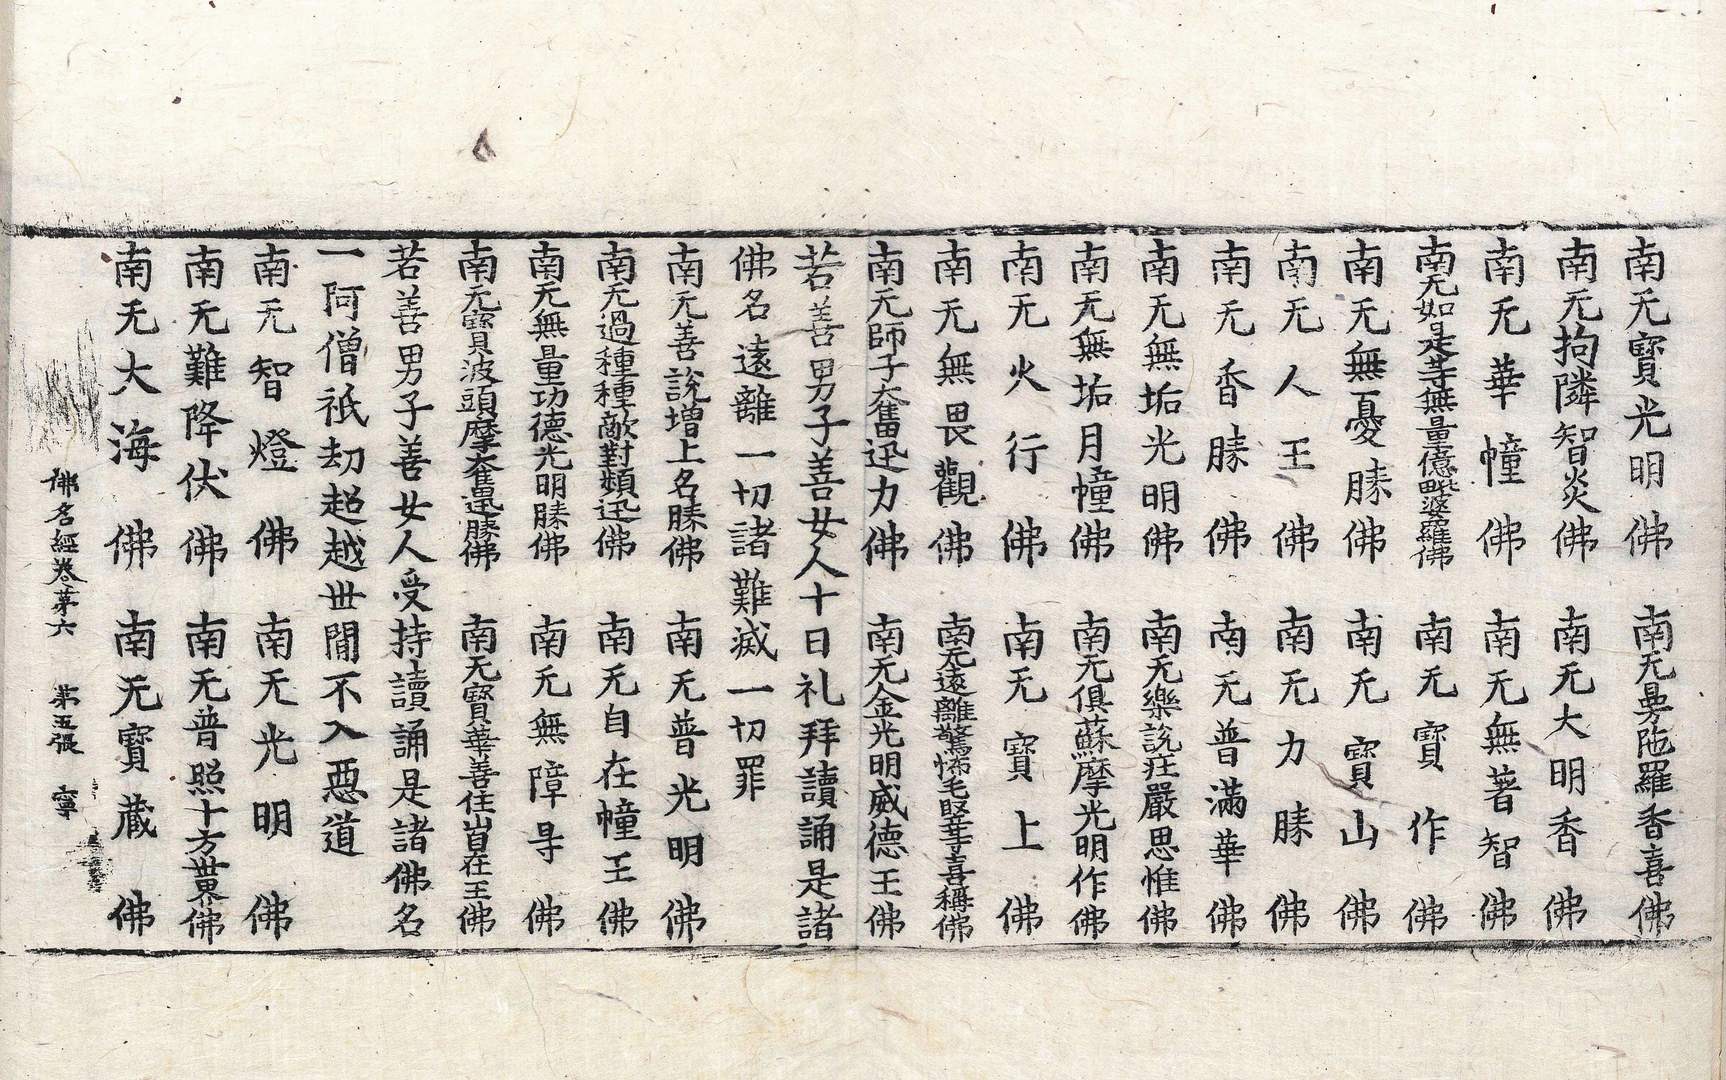 南无寶光明佛　南无曼陁羅香喜佛
南无拘隣智炎佛　南无大明香佛
南无華幢佛　南无無著智佛
南无如是等無量億毗婆羅佛　南无寶作佛
南无無憂勝佛　南无寶山佛
南无人王佛　南无力勝佛
南无香勝佛　南无普滿華佛
南无無垢光明佛　南无樂說莊嚴思惟佛
南无無垢月幢佛　南无俱蘇摩光明作佛
南无火行佛　南无寶上佛
南无無畏觀佛　南无遠離驚怖毛竪等喜稱佛
南无師子奮迅力佛　南无金光明威德王佛
若善男子善女人十日礼拜讀誦是諸
佛名遠離一切諸難滅一切罪
南无善說增上名勝佛　南无普光明佛
南无過種種敵對類迅佛　南无自在幢王佛
南无無量功德光明勝佛　南无無障㝵佛
南无寶波頭摩奮迅勝佛　南无寶華善住山自在王佛
若善男子善女人受持讀誦是諸佛名
一阿僧祇劫超越世閒不入惡道
南无智燈佛　南无光明佛
南无難降伏佛　南无普照十方世界佛
南无大海佛　南无寶蔵佛
佛名經卷第六　第五張　寧